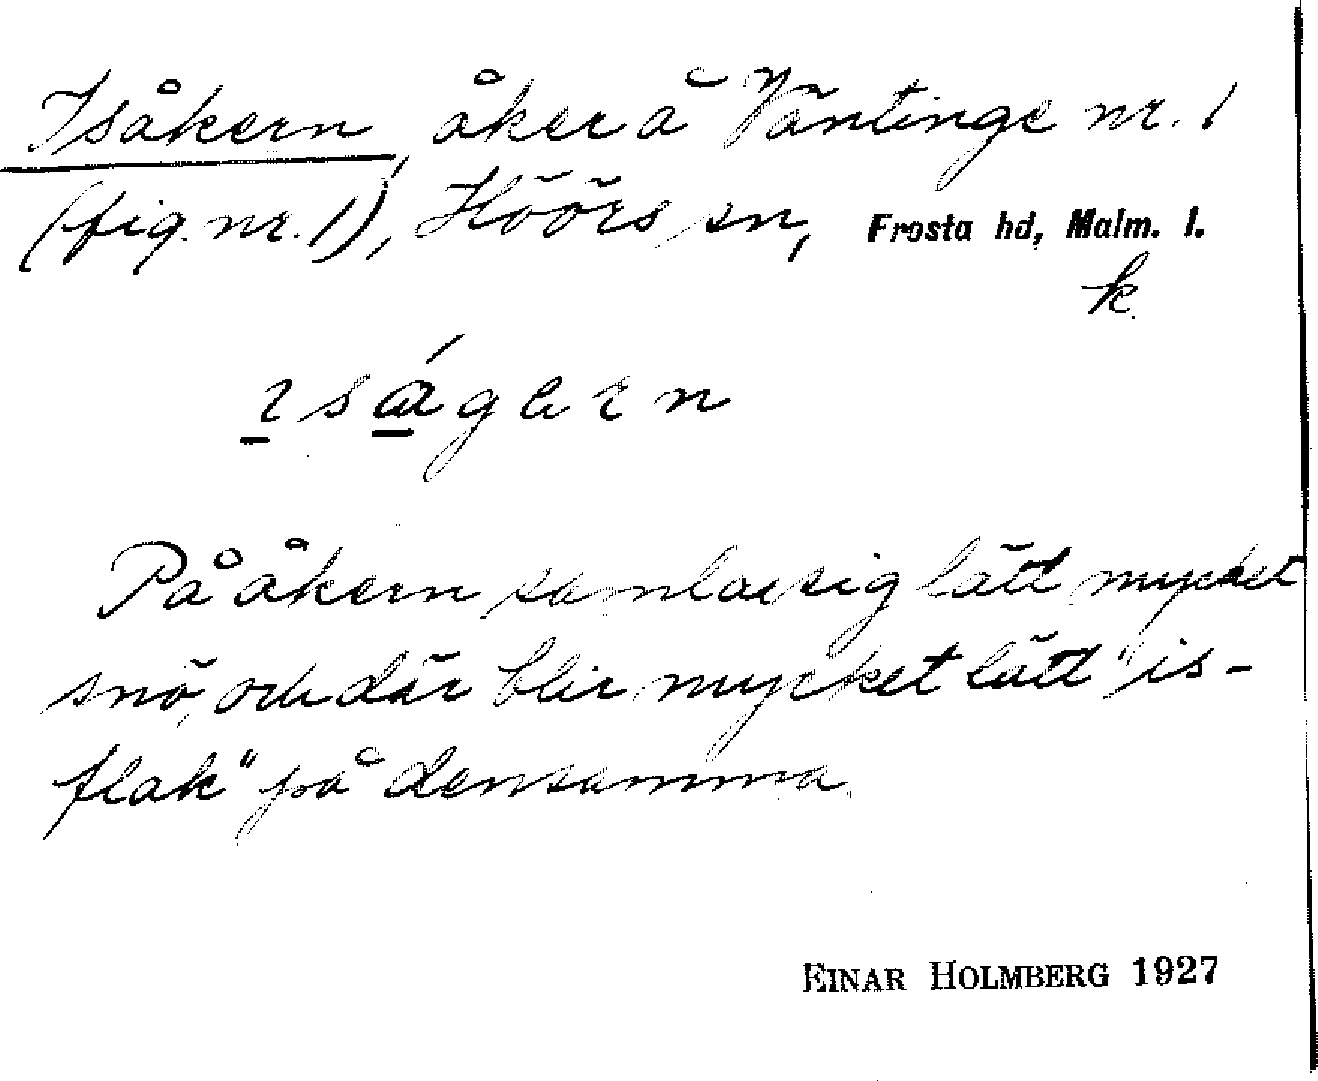 Isåkern, åker å Väntinge nr. 1
(fig. nr. 1), Höörs sn, Frosta hd, Malm. l.
k
På åkern samlar sig lätt mycket
snö, och där blir mycket lätt "is-
flak" på densamma.
EINAR HOLMBERG 1927